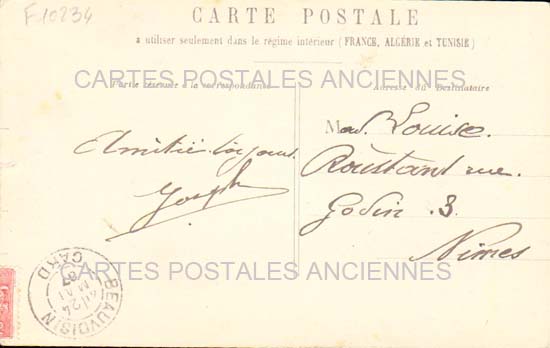 F10234
CARTE POSTALE
a utiliser seulement dans le régime intérieur (FRANCE, ALGÉRIE et TUNISIE)
CARTES POSTALES ANCIENNES
Partie réservée à la correspondance
Adresse du Destinataire
Louise.
Roustant rue.
Godin. 3
Nimes
Amitié
Joseph
CARTES POSTALES ANCIENNES
BEAUVOISIN
GARD
24
MAI
07